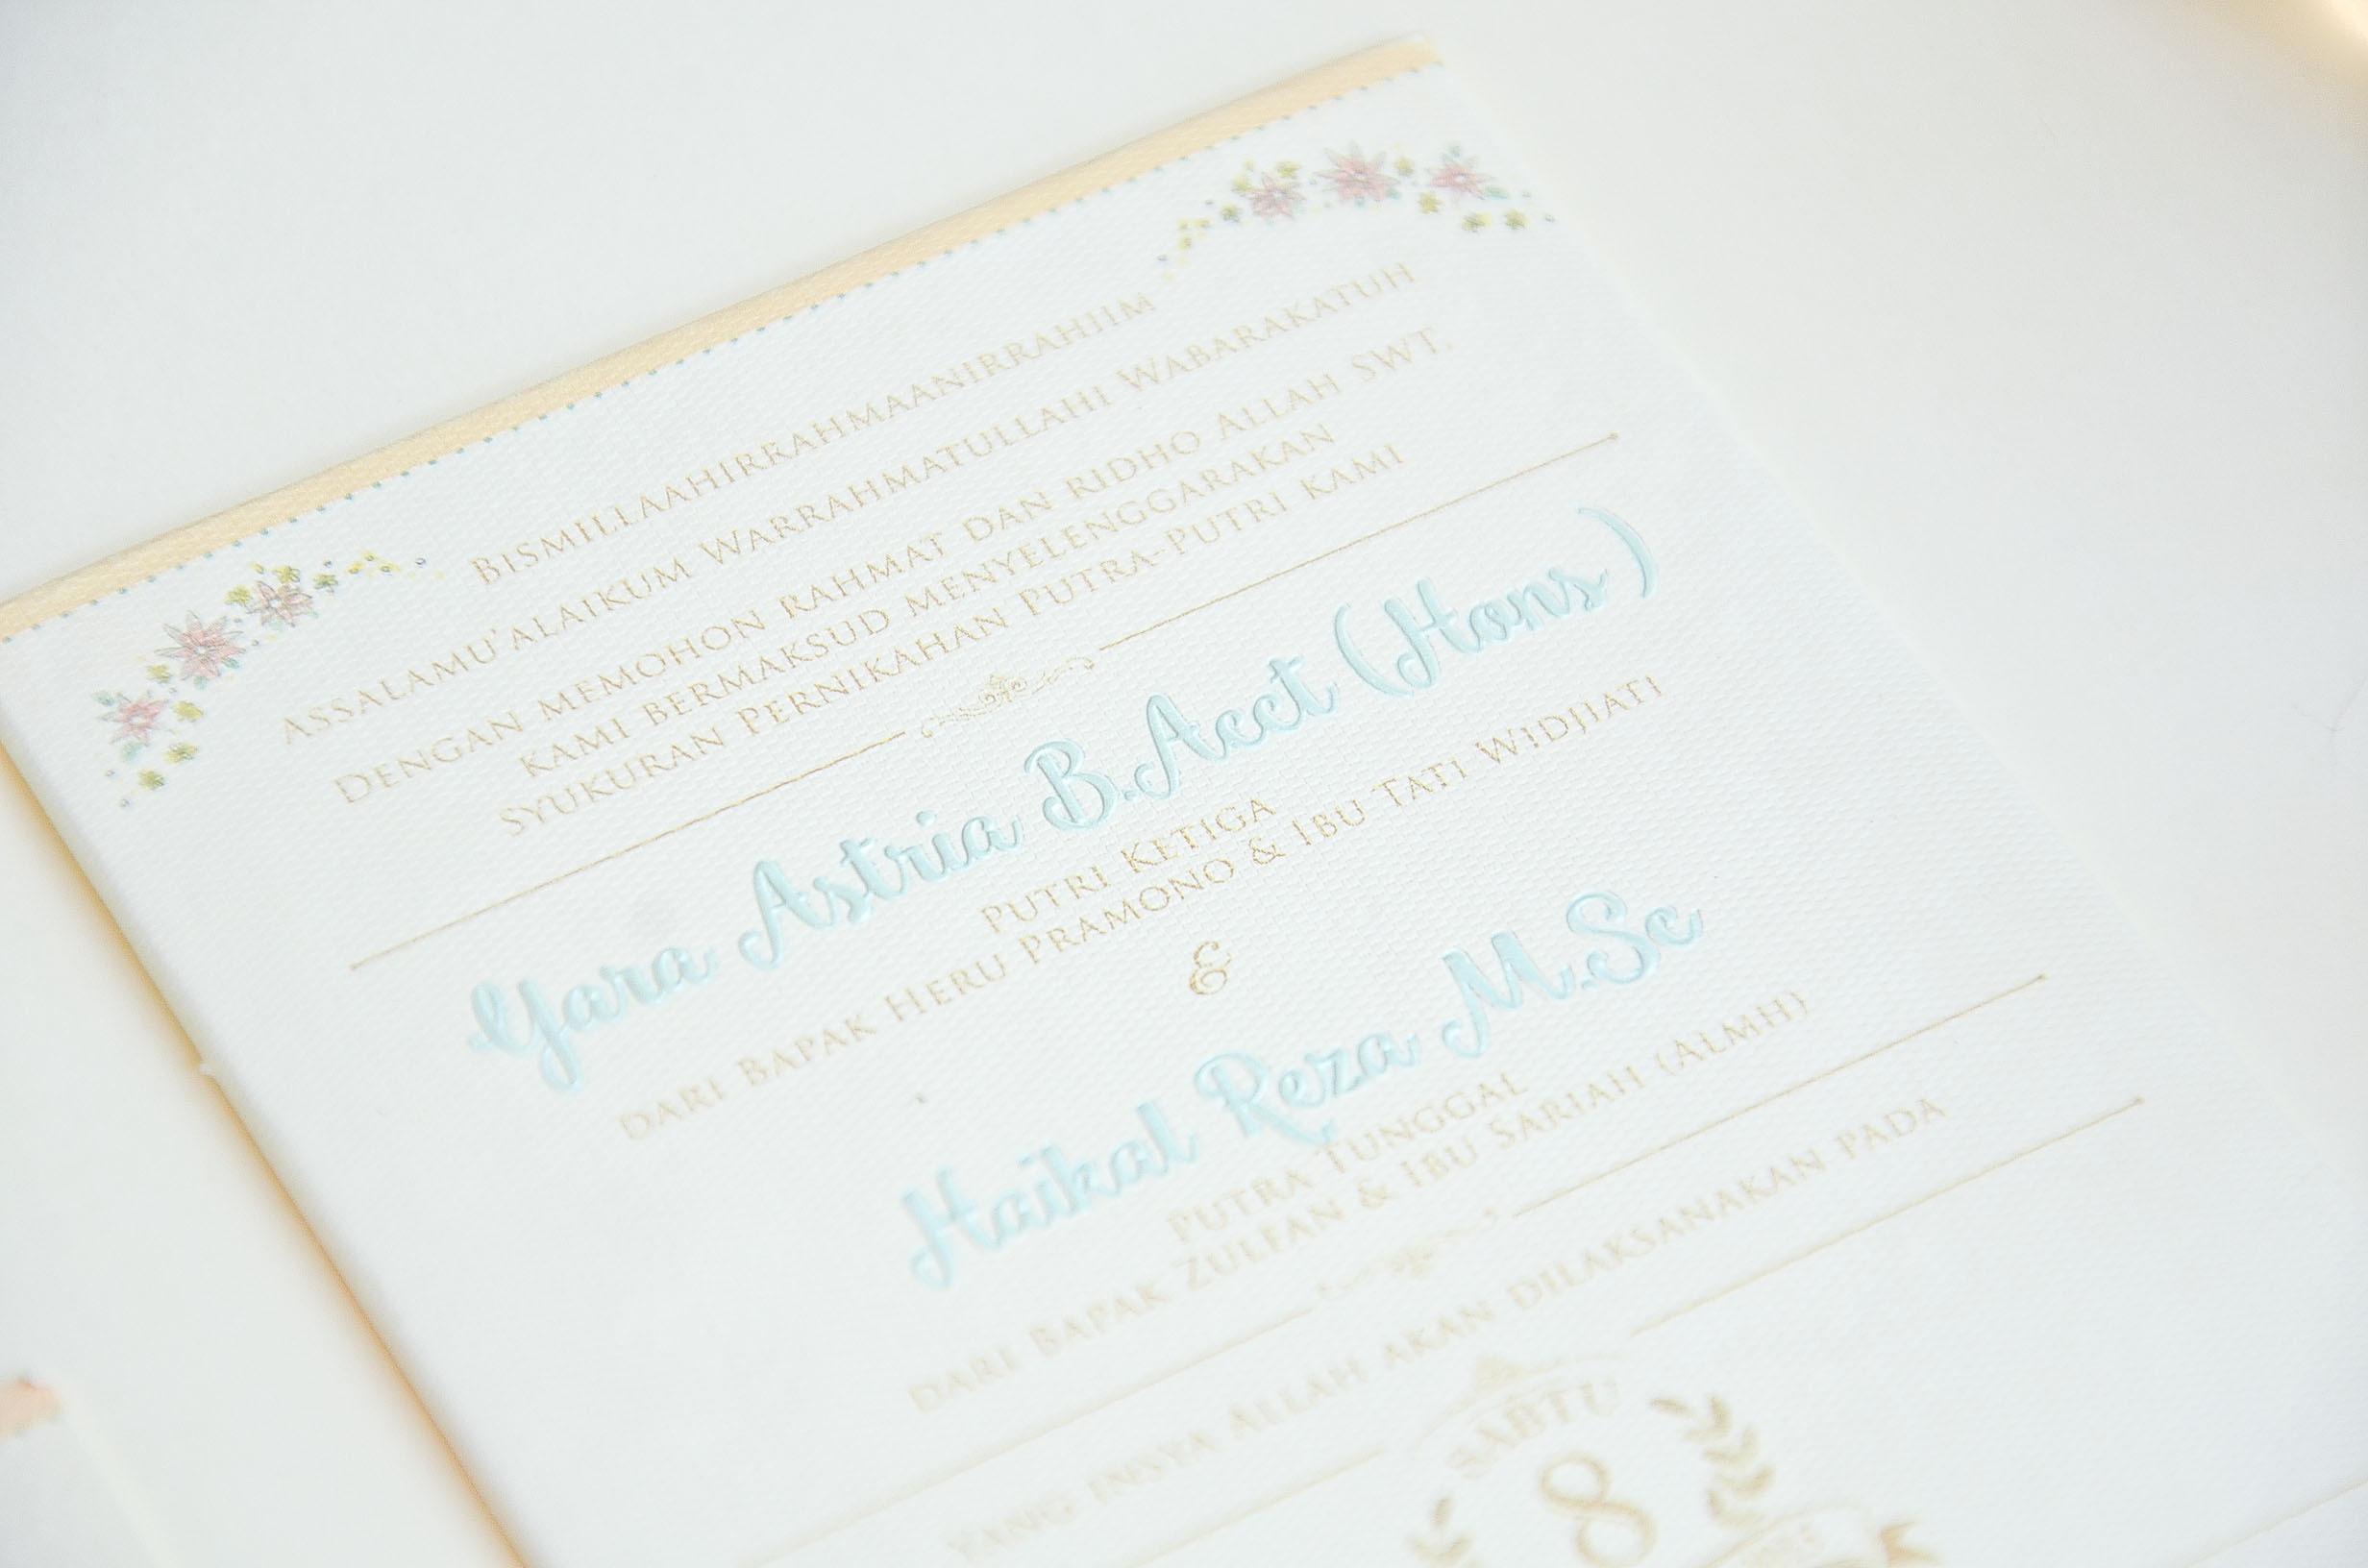 BISMILLAAHIRRAHMAANIRRAHIIM
ASSALAMU'ALAIKUM WARRAHMATULLAHI WABARAKATUH
DENGAN MEMOHON RAHMAT DAN RIDHO ALLAH SWT.
KAMI BERMAKSUD MENYELENGGARAKAN
SYUKURAN PERNIKAHAN PUTRA-PUTRI KAMI
Yara Astria B.Acct (Hons)
PUTRI KETIGA
DARI BAPAK HERU PRAMONO & IBU TATI WIDJIATI
&
Haikal Reza M.Sc
PUTRA TUNGGAL
DARI BAPAK ZULFAN & IBU SARIAH (ALMH)
YANG INSYA ALLAH AKAN DILAKSANAKAN PADA
SABTU
8